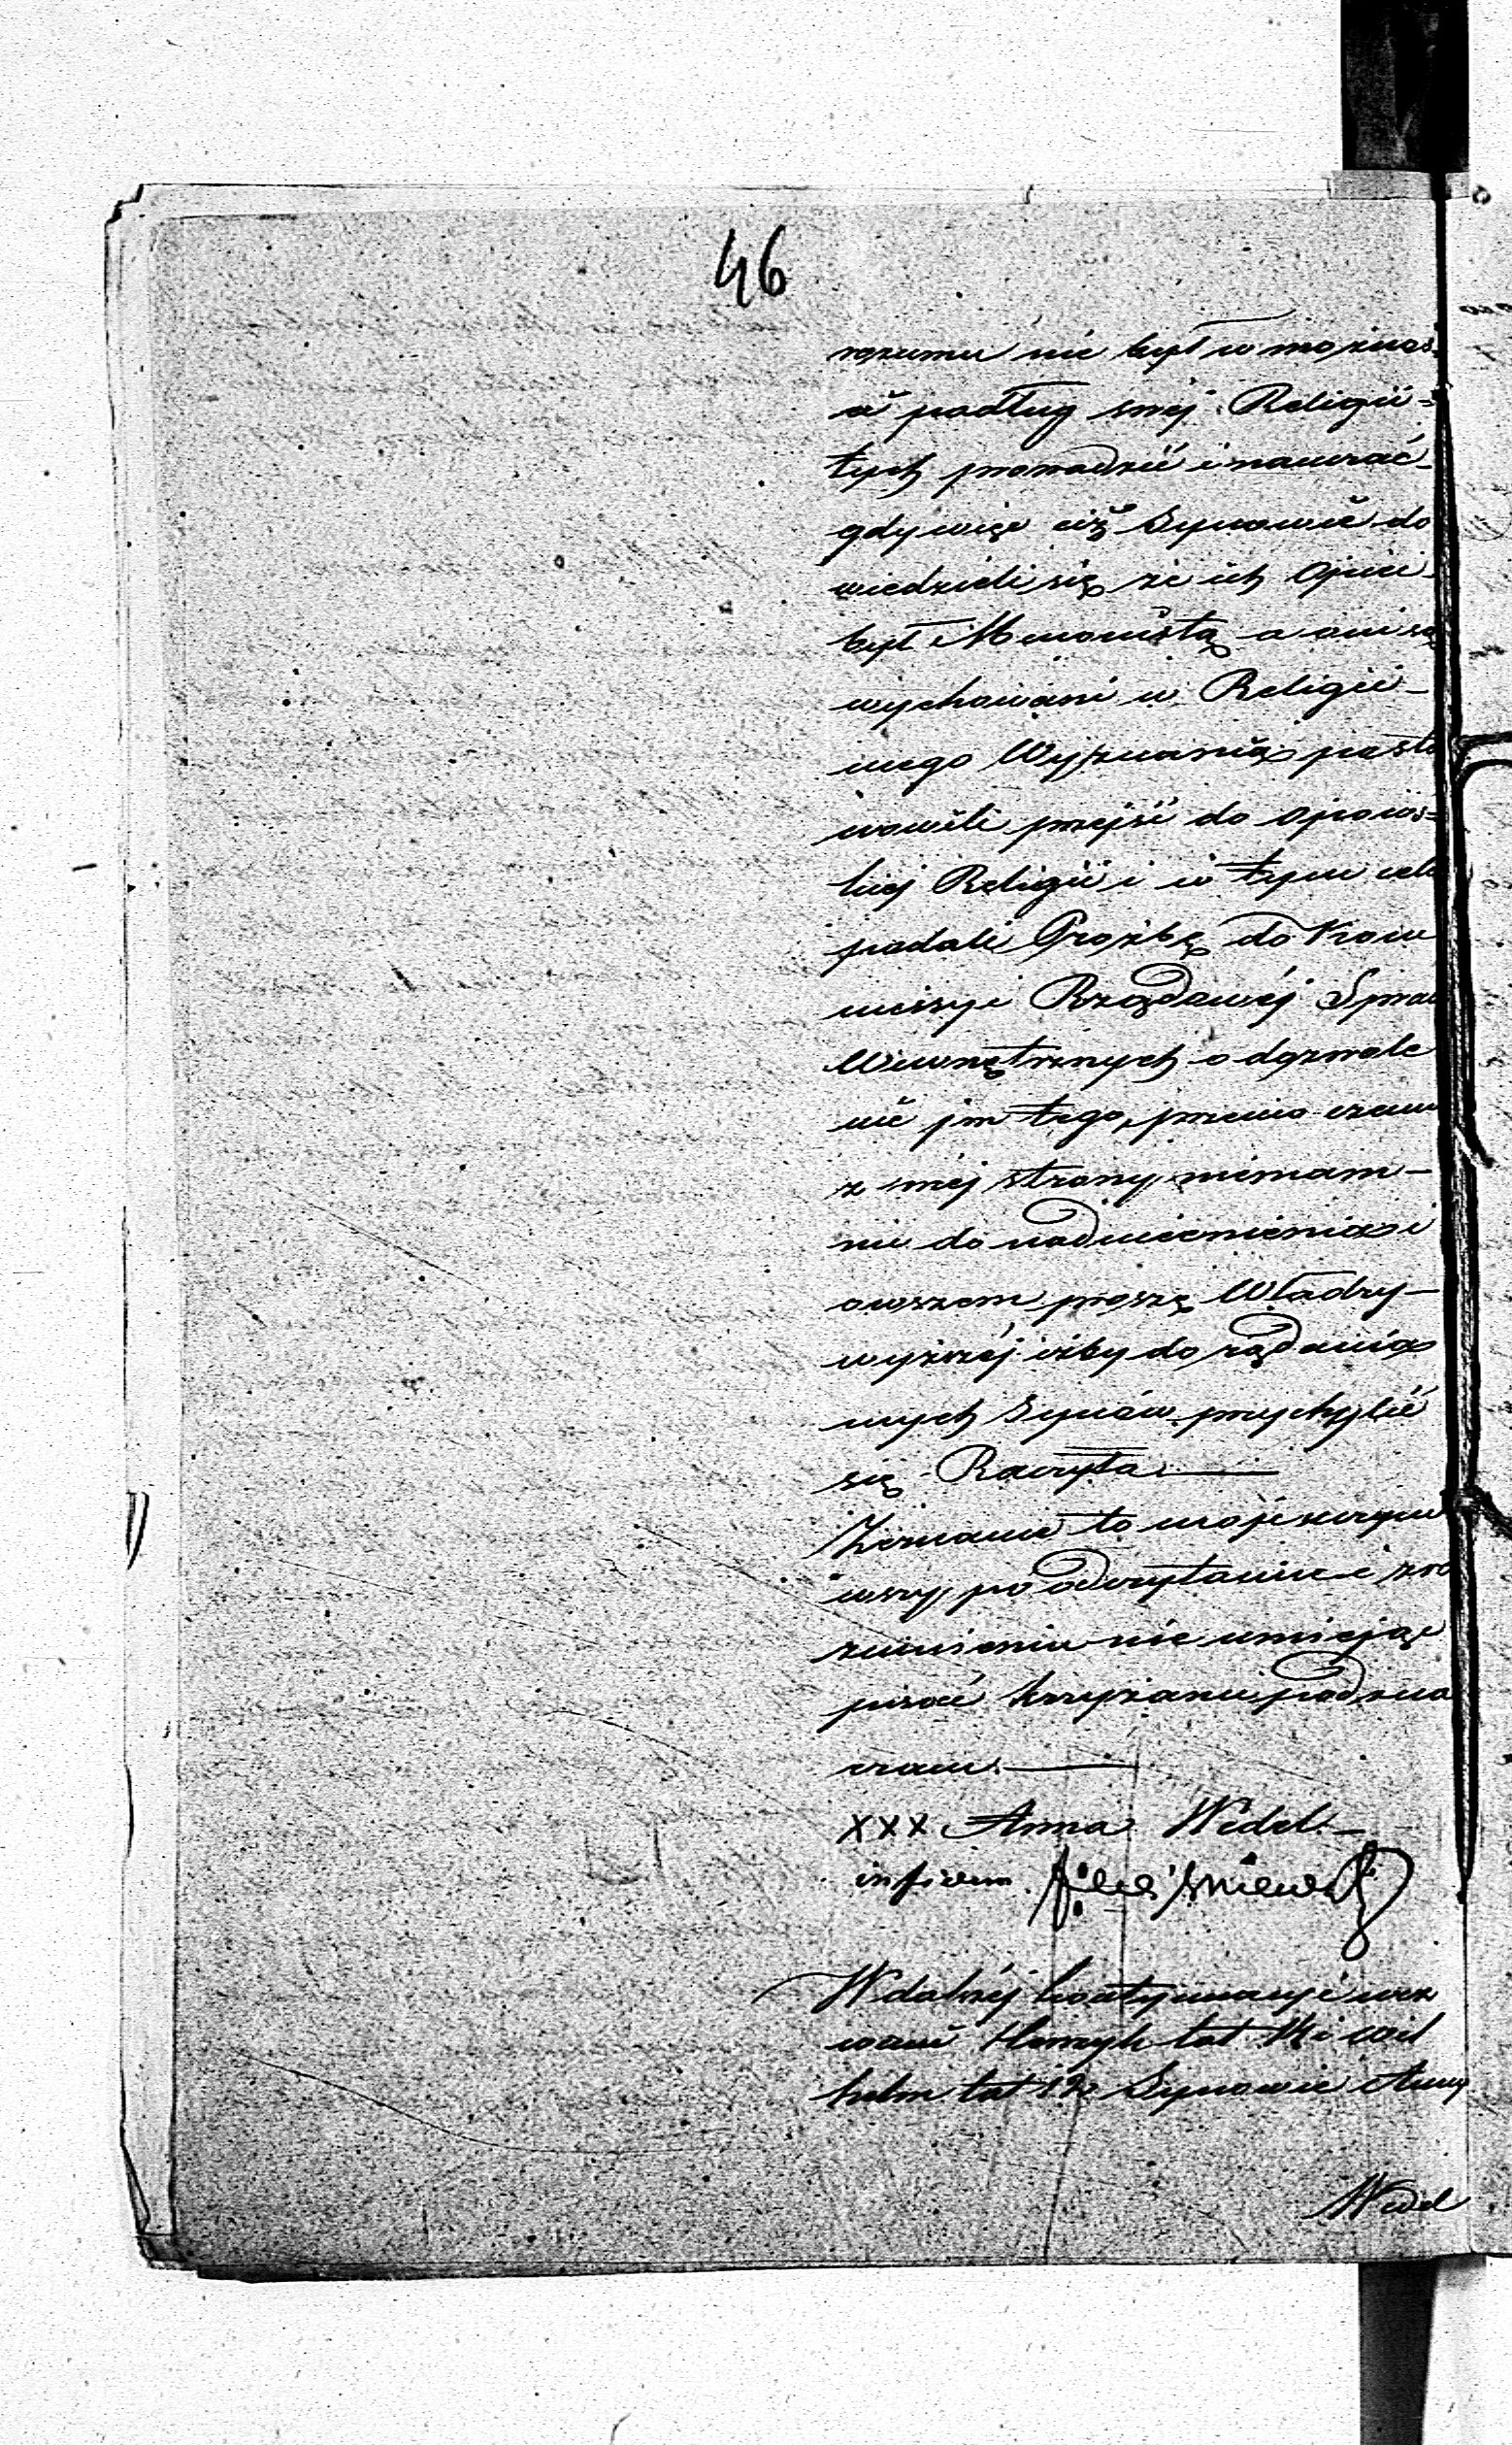 46
rozumu nie był w możnoś
ci podług swej Religii
tych prowadzić i nawracać
gdy więc ciż Synowie do
wiedzieli się że ich Ojciec
był Menonistą a oni są
wychowani w Religii
mego Wyznania posta
nowili przejść do ojcows=
kiej Religii i w tym celu
podali Prożbę do Kom
missyi Rządowéj Spraw
Wewnętrznych o dozwole
nie jm tego, przeciw czemu
z méj strony niemam
nic do nadmienienia i
owszem proszę Władzy
wyższéj iżby do rządania
mych Synów przychylić
się Raczyła.
Zeznanie to moje skrzym
wszy po odczytaniu i zro
zumieniu nie umiejąc
pisać krzyżami podzna
czam.
XXX Anna Wedel
in fidem
W dalszéj kontynuacyi wez
wani Henryk lat i Wil
helm lat 12 Synowie Anny
Wedel